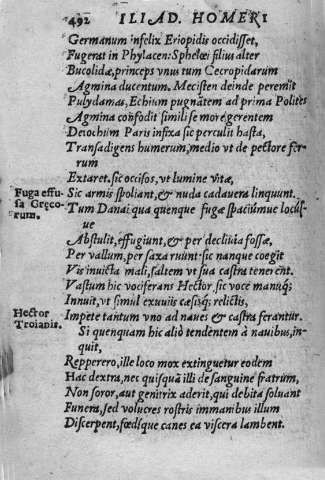 492 ILIAD. HOMERI
Germanum infelix Eriopidis occidisset,
Fugerat in Phylacen: Sphelœi filius alter
Bucolidæ, princeps vnus tum Cecropidarum
Agmina ducentum. Mecisten deinde peremit
Pulydamas, Echium pugnātem ad prima Polites
Agmina confodit simili se more gerentem
Deiochum Paris infixa sic perculit hasta,
Transadigens humerum, medio vt de pectore fer
rum
Extaret. sic occisos, vt lumine vitæ,
Fuga effu-
sa Græco-
rum.
Sic armis spoliant, & nuda cadauera linquunt.
Tum Danai qua quenque fugæ spaciúmue locús-
ue
Abstulit, effugiunt, & per decliuia fossæ,
Per vallum, per saxa ruūnt: sic nanque coegit
Vis inuicta mali, saltem vt sua castra tenerent.
Vastum hic vociferans Hector, sic voce manuq;
Innuit, vt simul exuuiis cæsisq; relictis,
Hector
Troianis.
Impete tantum vno ad naues & castra ferantur.
Si quenquam hic aliò tendentem à nauibus, in-
quit,
Repperero, ille loco mox extinguetur eodem
Hac dextra, nec quisquā illi de sanguine fratrum,
Non soror, aut genitrix aderit, qui debita soluant
Funera, sed volucres rostris immanibus illum
Discerpent, fœdisque canes ea viscera lambent.